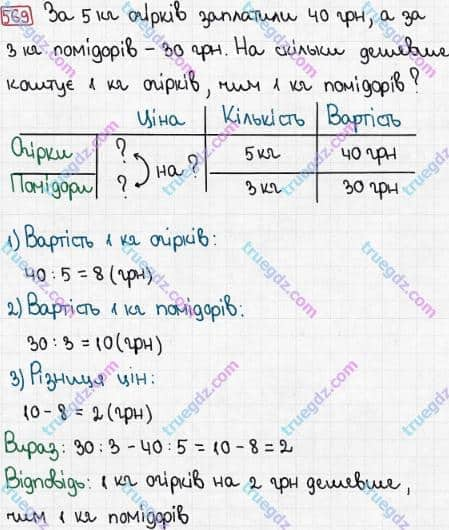 569 За 5 кг огірків заплатили 40 грн, а за
3 кг помідорів – 30 грн. На скільки дешевше
коштує 1 кг огірків, чим 1 кг помідорів?
Ціна Кількість Вартість
Огірки ? 5 кг 40 грн
на ?
Помідори ? 3 кг 30 грн
1) Вартість 1 кг огірків:
40 : 5 = 8 (грн)
2) Вартість 1 кг помідорів:
30 : 3 = 10 (грн)
3) Різниця цін:
10 - 8 = 2 (грн)
Вираз: 30 : 3 - 40 : 5 = 10 - 8 = 2
Відповідь: 1 кг огірків на 2 грн дешевше,
чим 1 кг помідорів
truegdz.com